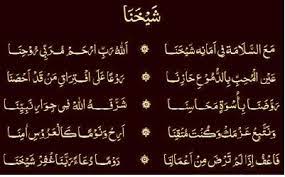 شَيْخَنَا
مَعَ السَّلَامَة فِى أَمَانِه شَيْخَنَا ۞ اَللهُ رَبِّ ارْحَمْ مُرَبِّى رُوْحِنَا
عَيْنُ الْمُحِبِّ بِالدُّمُوْعِ حَازِنَا ۞ يَوْمًا عَلَى افْتِرَاقِ مَنْ قَدْ اَحْصَنَا
بِأُسْوَةٍ مَحَاسِنَا ۞ شَرَّفَكَ اللهُ فِى جِوَارِ نَبِيِّنَا
عَزْمَكَ وَكُنْتَ مُتْقِنَا ۞ اَرِحْ وَنَوْمًا كَالْعَرُوْسِ اٰمِنَا
فَاعْفُ اِذَا لَمْ تَرْضَ مِنْ اَعْمَالِنَا ۞ رَوْمًا دُعَاءً رَبَّنَا غْفِرْ شَيْخَنَا